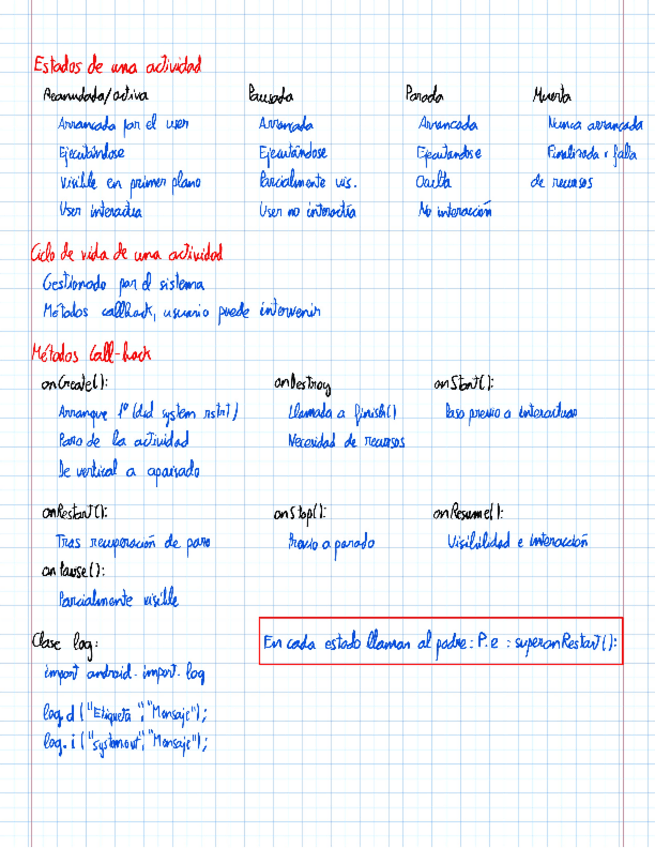 Estados de una actividad
Reanudada/activa Pausada Parada Muerta
Arrancada por el user Arrancada Arrancada Nunca arrancada
Ejecutándose Ejecutándose Ejecutandose Finalizada x falta
Visible en primer plano Parcialmente vis. Oculta de recursos
User interactua User no interactúa No interacción
Ciclo de vida de una actividad
Gestionado por el sistema
Métodos callback, usuario puede intervenir
Métodos Call-back
onCreate(): onDestroy onStart():
Arranque 1º (del system rstrt) Llamada a finish() Paso previo a interactuar
Paro de la actividad Necesidad de recursos
De vertical a apaisado
onRestart(): onStop(): onResume():
Tras recuperación de paro Previo a parado Visibilidad e interacción
onPause():
Parcialmente visible
Clase log: En cada estado llaman al padre: P.e : superonRestart():
import android.import.log
log.d ("Etiqueta","Mensaje");
log.i ("system.out","Mensaje");